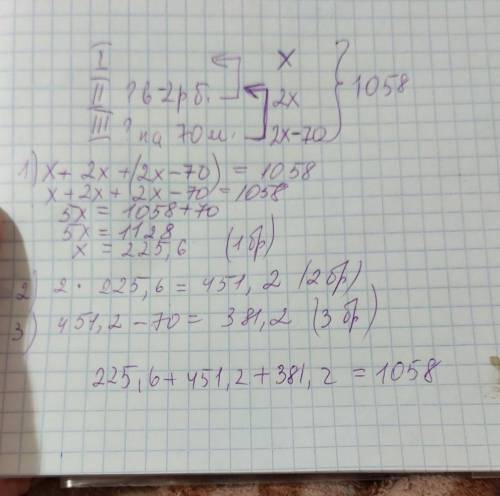 I x
II ? в 2 р б. 2x } 1058
III ? на 70 м. 2x-70
1) x + 2x + (2x-70) = 1058
x + 2x + (2x - 70 = 1058
5x = 1058 + 70
5x = 1128
x = 225,6 (1 бр)
2) 2 · 225,6 = 451,2 (2 бр)
3) 451,2 - 70 = 381,2 (3 бр)
225,6 + 451,2 + 381,2 = 1058